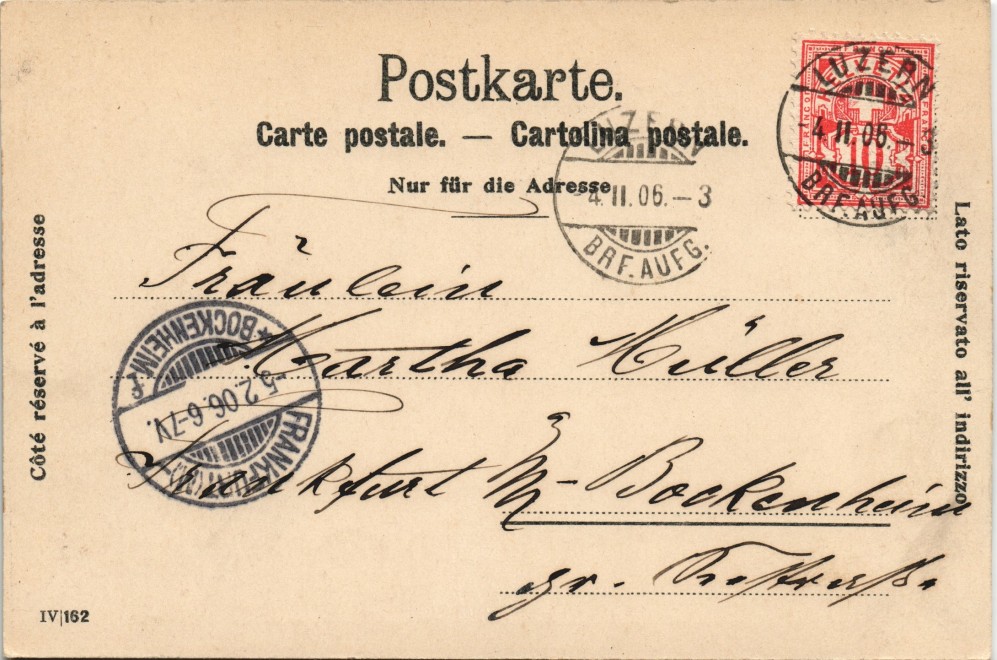 Postkarte.
Carte postale. — Cartolina postale.
Nur für die Adresse
Côté réservé à l'adresse
Lato riservato all' indirizzo
LUZERN
-4.II.06.-3
BRF.AUFG.
LUZERN
-4.II.06.-3
BRF.AUFG.
10
Fräulein
Martha Müller
Frankfurt a/M-Bockenheim
gr.
FRANKFURT (M)
-5.2.06.6-7N.
*BOCKENHEIM
IV|162